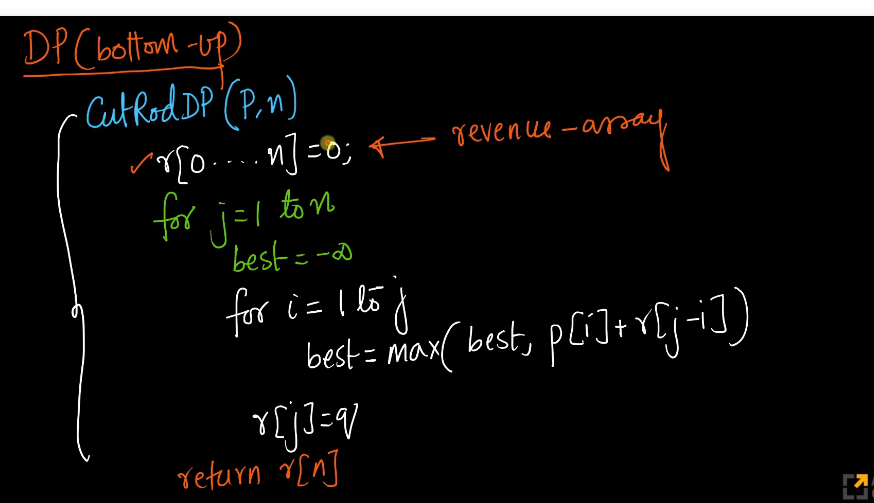 DP (bottom-up)
CutRodDP (P,n)
r[0 .... n] = 0; ← revenue-array
for j=1 to n
best = -∞
for i = 1 to j
best = max( best, p[i] + r[j-i] )
r[j]=q
return r[n]